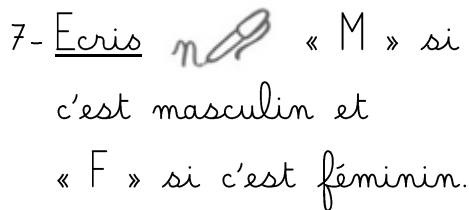 7- Ecris « M » si
c'est masculin et
« F » si c'est féminin.